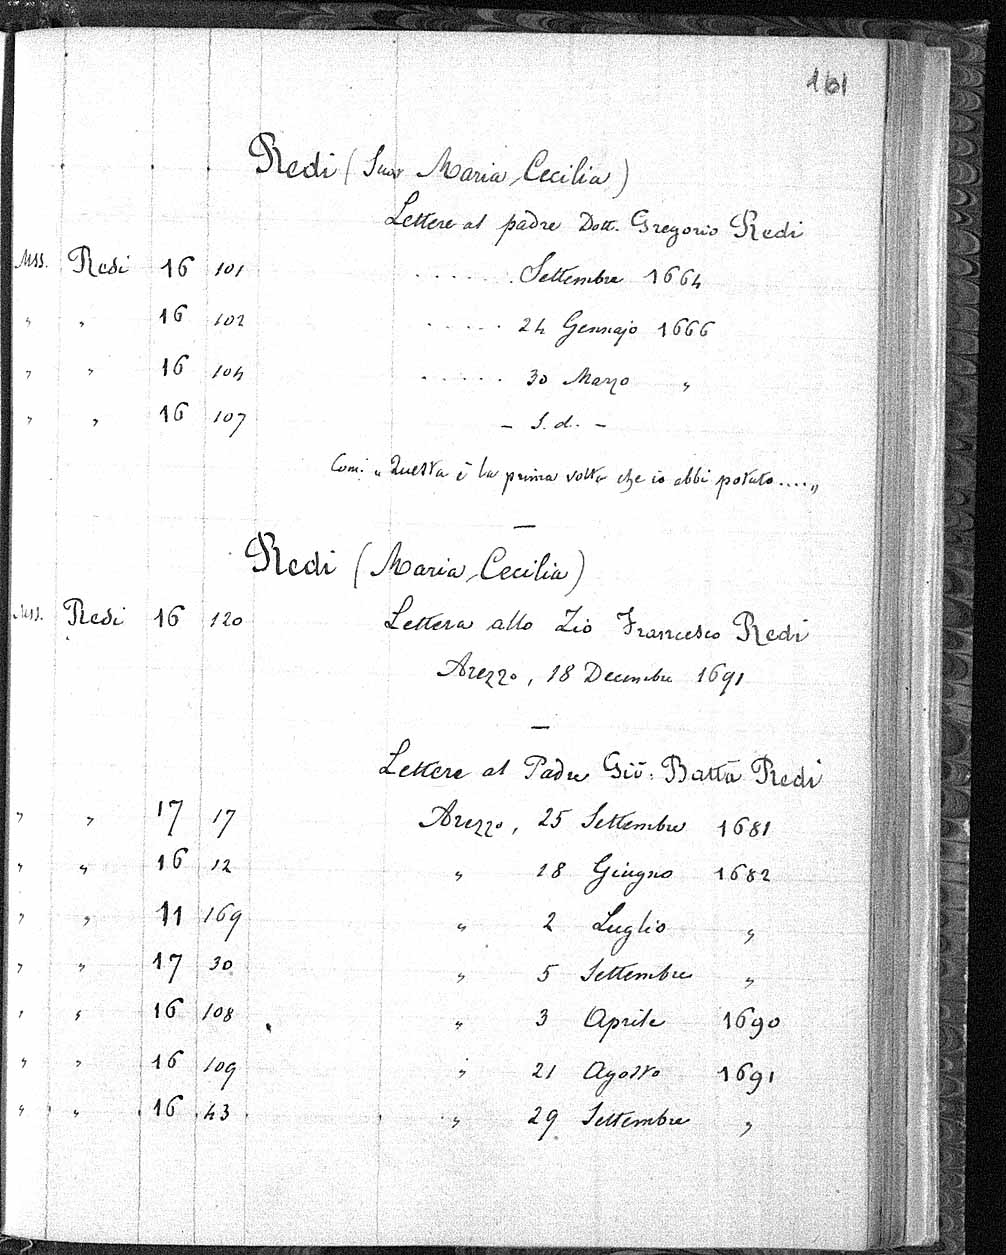 161
Redi (Suor Maria Cecilia)
Lettere al padre Dott. Gregorio Redi
Mss. Redi 16 101 . . . . . . Settembre 1664
" " 16 102 . . . . . 24 Gennajo 1666
" " 16 104 . . . . . 30 Marzo "
" " 16 107 – S. d. –
Com: „ Questa è la prima volta che io abbi potuto...."
—
Redi (Maria Cecilia)
Mss. Redi 16 120 Lettera allo Zio Francesco Redi
Arezzo, 18 Decembre 1691
—
Lettere al Padre Gio: Batta Redi
" " 17 17 Arezzo, 25 Settembre 1681
" " 16 12 " 18 Giugno 1682
" " 11 169 " 2 Luglio "
" " 17 30 " 5 Settembre "
" " 16 108 " 3 Aprile 1690
" " 16 109 " 21 Agosto 1691
" " 16 43 " 29 Settembre "